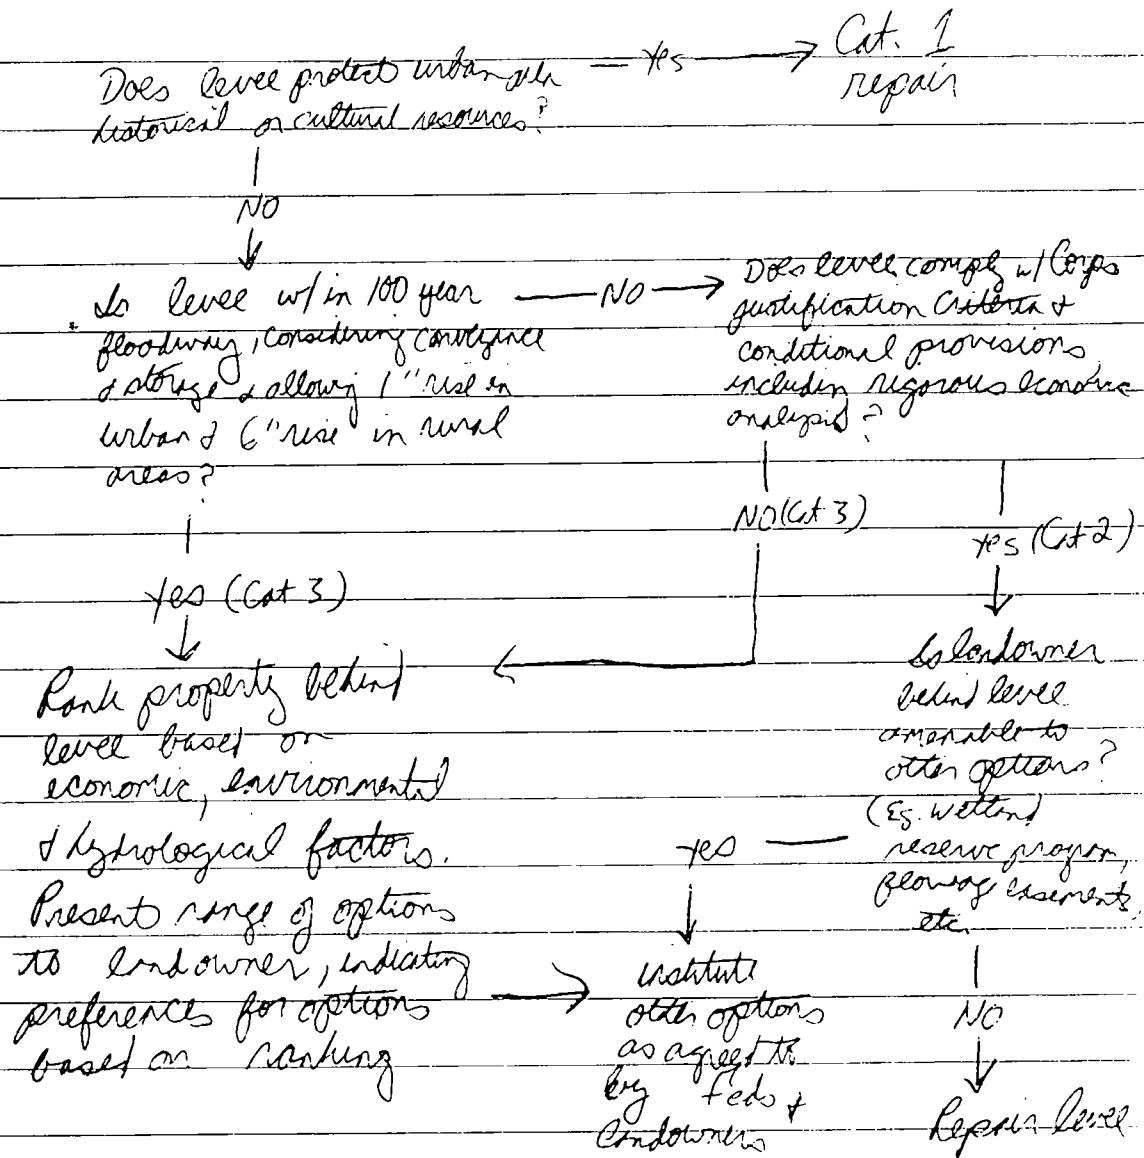 Does levee protect urban area
historical or cultural resources?
Yes
Cat. 1
repair
NO
Is levee w/in 100 year
floodway, considering conveyance
& storage & allowing 1" rise in
urban & 6" rise in rural
areas?
NO
Does levee comply w/ Corps
justification criteria &
conditional provisions
including rigorous economic
analysis?
Yes (Cat 3)
NO (Cat 3)
Yes (Cat 2)
Rank property behind
levee based on
economic, environmental
& hydrological factors.
Present range of options
to landowner, indicating
preferences for options
based on ranking
Is landowner
behind levee
amenable to
other options?
(Eg. Wetland
reserve program,
flowage easements,
etc.
Yes
institute
other options
as agreed to
by Feds &
landowners
NO
Repair levee